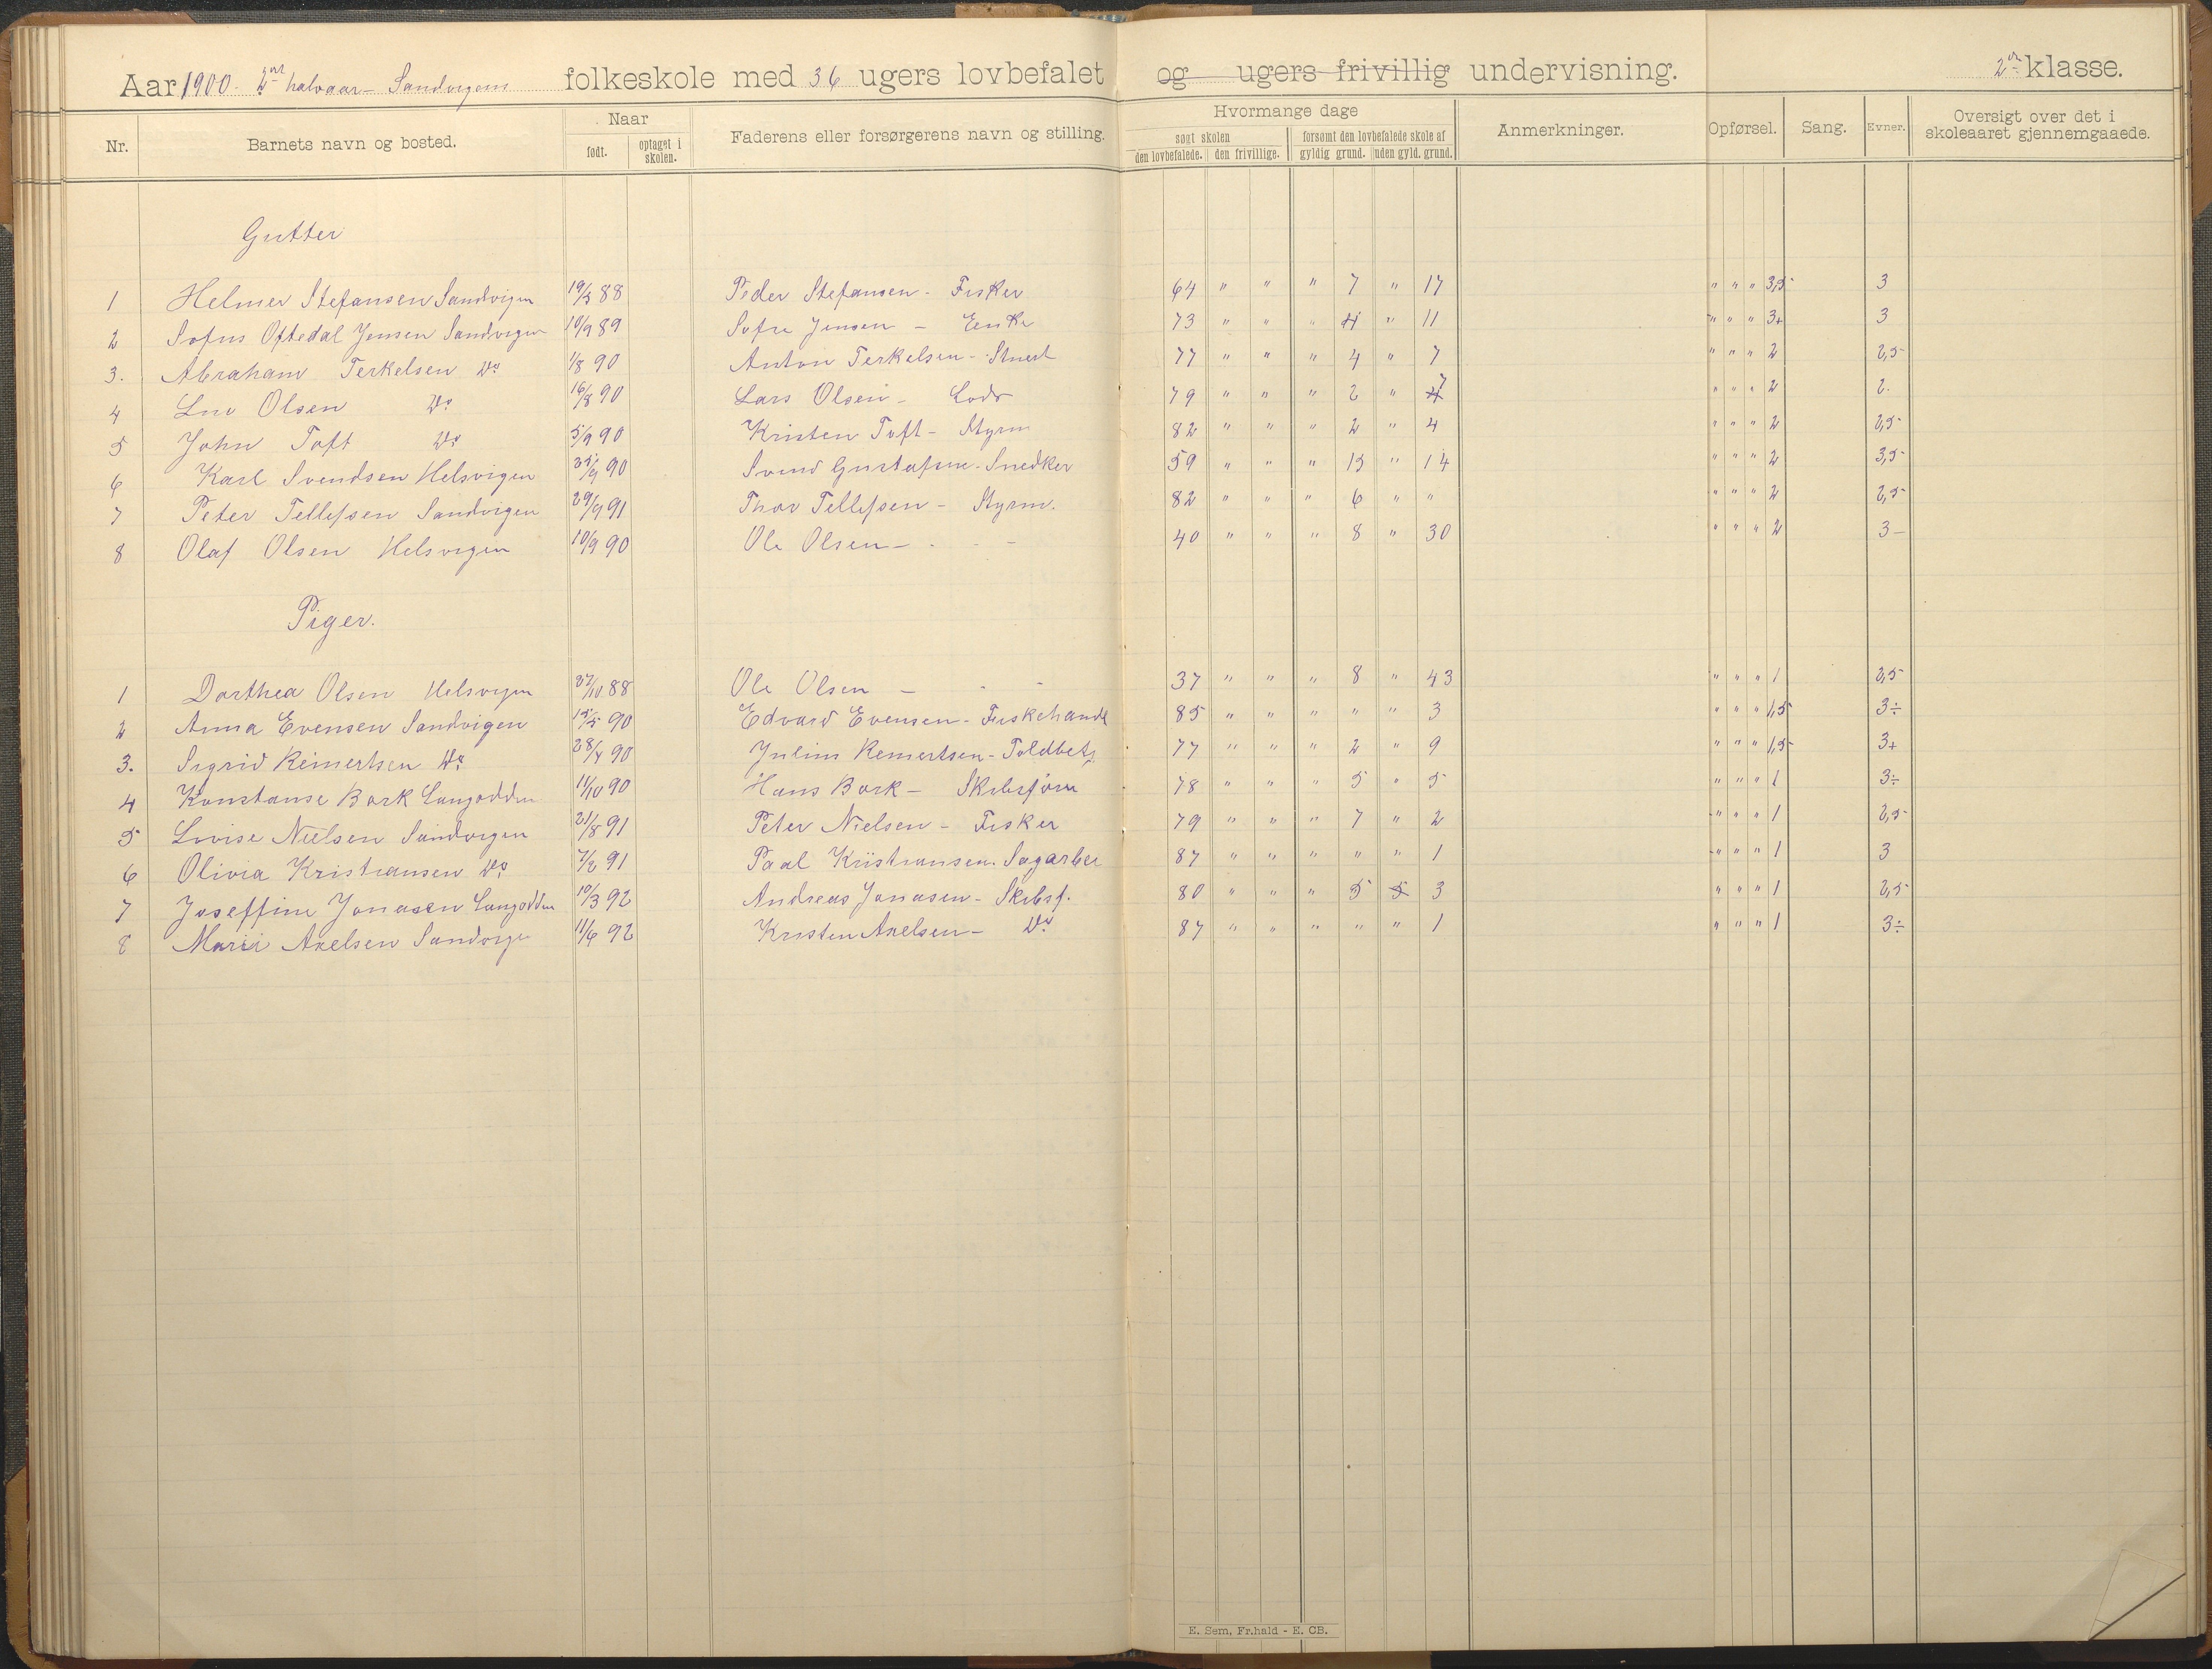 Aar 1900. 2net halvaar – Sandvigens folkeskole med 36 ugers lovbefalet og ugers frivillig undervisning. 2n klasse.
Nr. Barnets navn og bosted. Naar født. optaget i skolen. Faderens eller forsørgerens navn og stilling. Hvormange dage søgt skolen den lovbefalede. den frivillige. forsømt den lovbefalede skole af gyldig grund. uden gyld. grund. Anmerkninger. Opførsel. Sang. Evner. Oversigt over det i skoleaaret gjennemgaaede.
Gutter
1 Helmer Stefansen Sandvigen 19/3 88 Peder Stefansen - Fisker 64 " " " 7 " 17 " " " 3,5 3
2 Sofus Oftedal Jensen Sandvigen 10/9 89 Sofie Jensen – Enke 73 " " " 4 " 11 " " " 3+ 3
3. Abraham Terkelsen Do 1/8 90 Anton Terkelsen - Stuert 77 " " " 4 " 7 " " " 2 2,5
4 Olsen Do 16/8 90 Lars Olsen - Lods 79 " " " 2 " 7 " " " 2 2.
5 John Toft Do 5/9 90 Kristen Toft - Styrm 82 " " " 2 " 4 " " " 2 2,5
6 Karl Svendsen Helsvigen 25/9 90 Svend Gustafsen - Snedker 59 " " " 15 " 14 " " " 2 3,5
7 Peter Tellefsen Sandvigen 29/9 91 Thor Tellefsen - Styrm. 82 " " " 6 " " " " " 2 2,5
8 Olaf Olsen Helsvigen 10/9 90 Ole Olsen - - – 40 " " " 8 " 30 " " " 2 3–
Piger.
1 Dorthea Olsen Helsvigen 27/10 88 Ole Olsen – - - 37 " " " 8 " 43 " " " 1 2,5
2 Anna Evensen Sandvigen 15/5 90 Edvard Evensen - Fiskehandl 85 " " " " " 3 " " " 1,5 3÷
3. Sigrid Reimertsen Do 28/4 90 Julius Reimertsen - Toldbetj. 77 " " " 2 " 9 " " " 1,5 3+
4 Konstanse Bork Langodden 11/10 90 Hans Bork – Skibsføre 78 " " " 5 " 5 " " " 1 3÷
5 Lovise Nielsen Sandvigen 21/8 91 Peter Nielsen - Fisker 79 " " " 7 " 2 " " " 1 2,5
6 Olivia Kristiansen Do 7/2 91 Paal Kristiansen. Sagarber 87 " " " " " 1 " " " 1 3
7 Joseffine Jonasen Langodden 10/3 92 Andreas Jonasen - Skibsf. 80 " " " 5 5 3 " " " 1 2,5
8 Marie Axelsen Sandvige 11/6 92 Kristen Axelsen – Do 87 " " " " " 1 " " " 1 3÷
E. Sem, Fr.hald - E. CB.